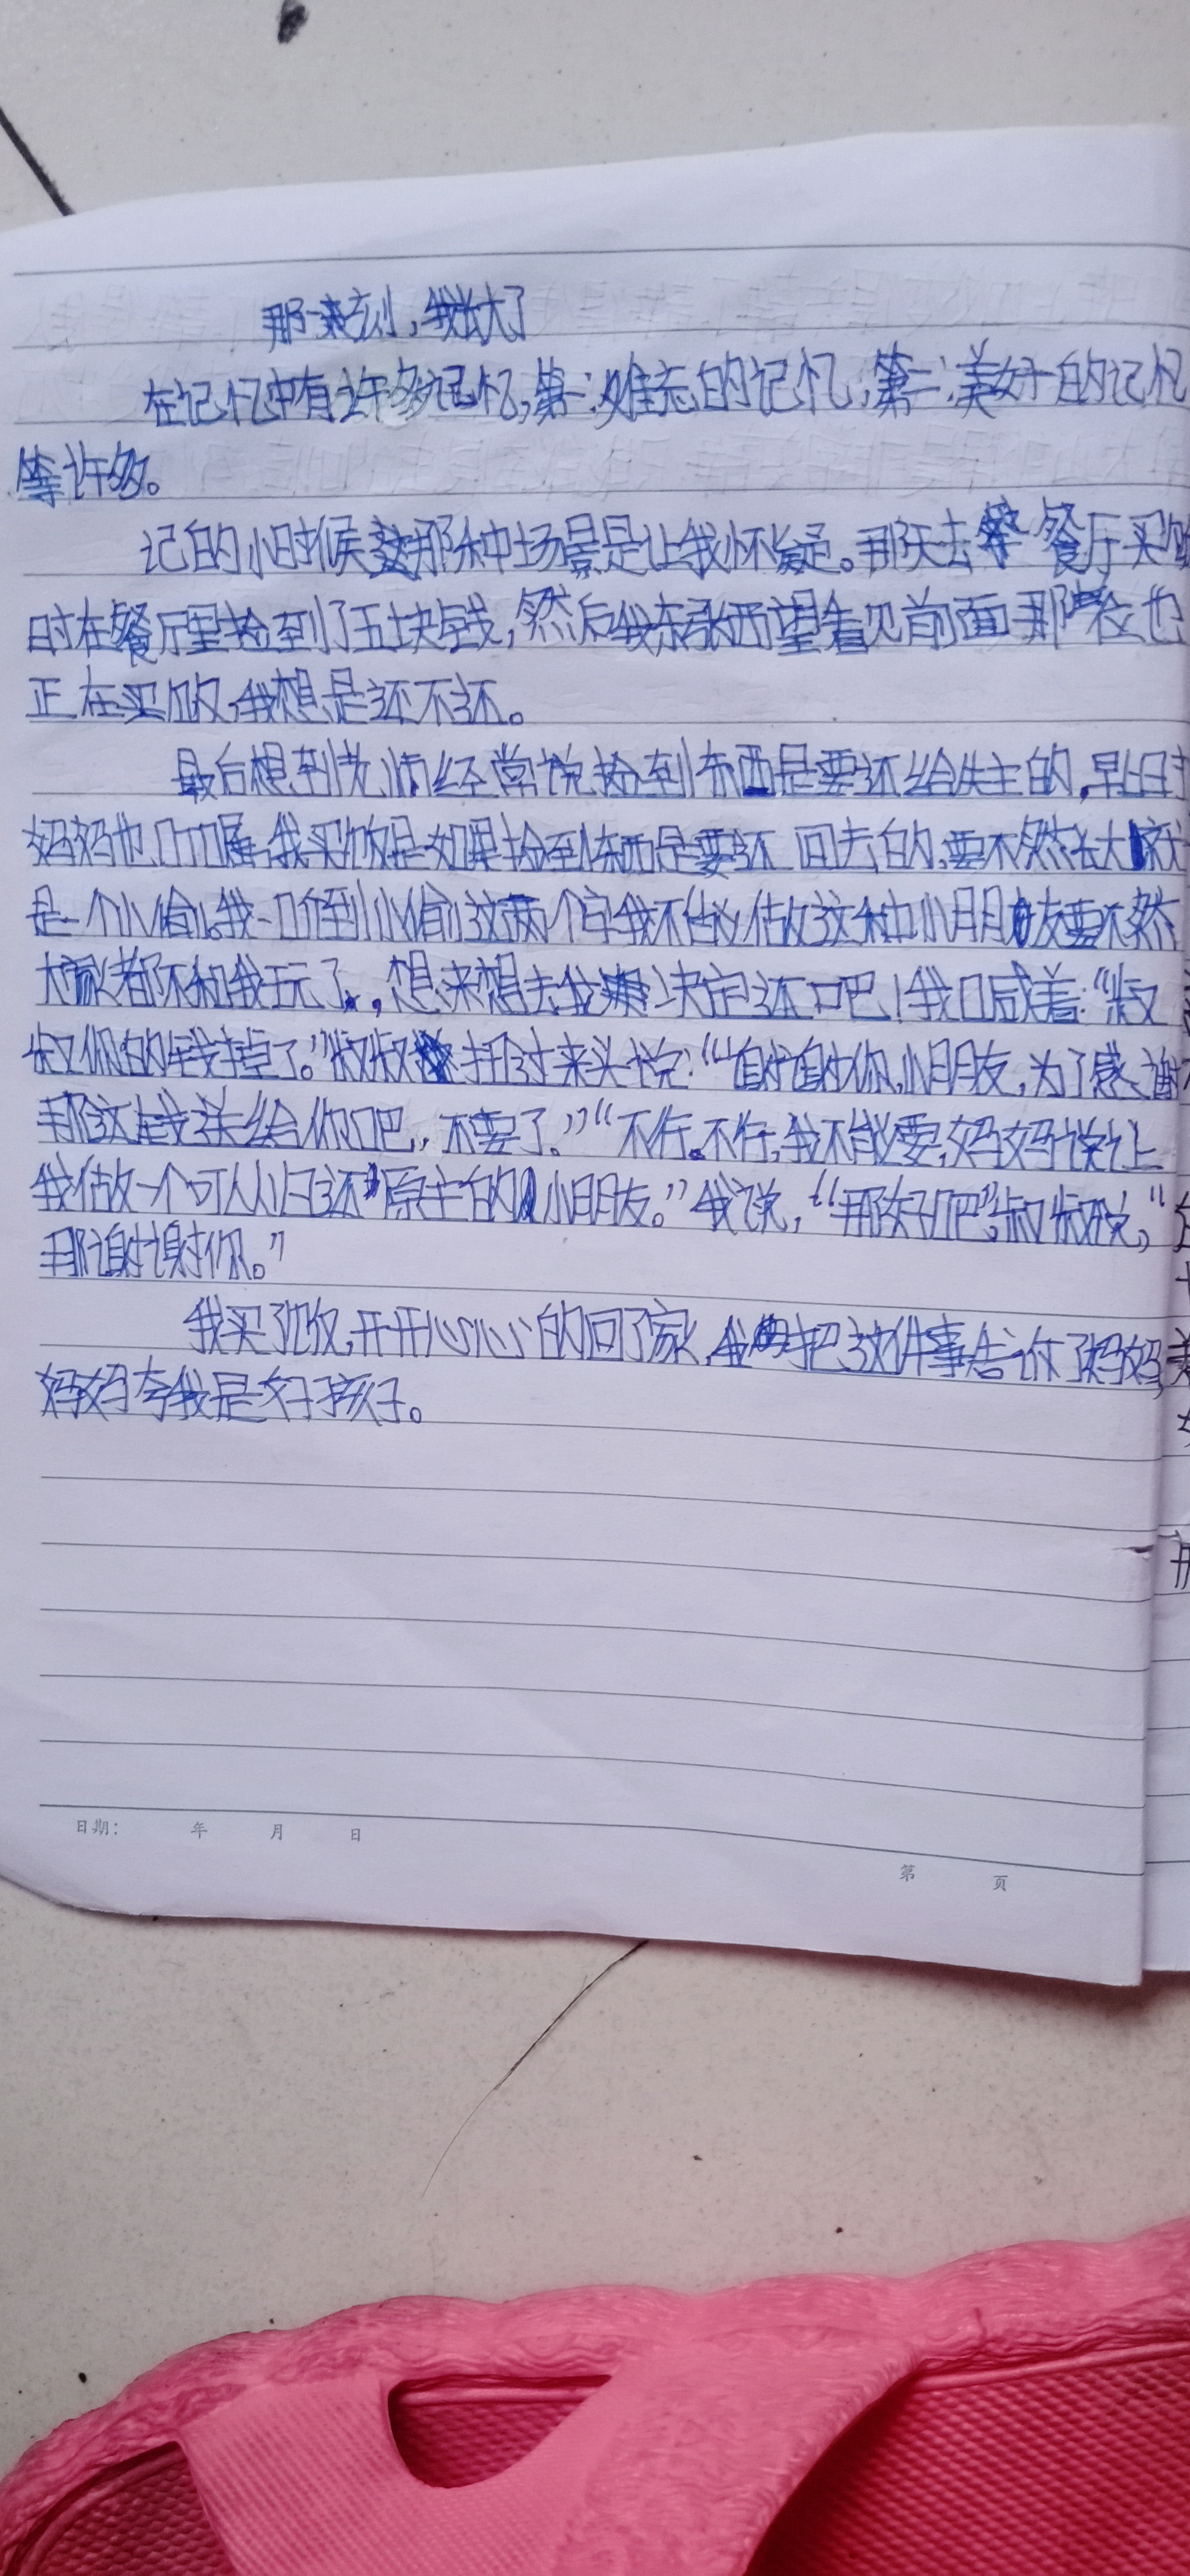 那一刻，我长大了
在记忆中有许多记忆，第一：难忘的记忆，第二：美好的记忆
等许多。
记的小时候 那种场景是让我怀疑。那天去 餐厅买饭
时在餐厅里捡到了五块钱，然后我东张西望看见前面那 位也
正在买饭，我想是还不还。
最后想到老师经常说捡到东西是要还给失主的，早上
妈妈也叮嘱，我买饭是如果捡到东西是要还回去的，要不然长大就
是一个小偷。我一 到小偷这两个字我不 做这种小朋友要不然
大家都不和我玩了，想来想去我 决定还吧！我喊着：“叔
叔你的钱掉了。”叔叔 扭过来头说：“谢谢你，小朋友，为了感谢
那这钱送给你吧，不要了。”“不行，不行，我不能要，妈妈说让
我做一个可以归还原主的小朋友。”我说，“那好吧”，叔叔说，“
那谢谢你。”
我买了饭，开开心心的回了家，我 把这件事告诉了妈妈，
妈妈夸我是好孩子。
日期： 年 月 日
第 页